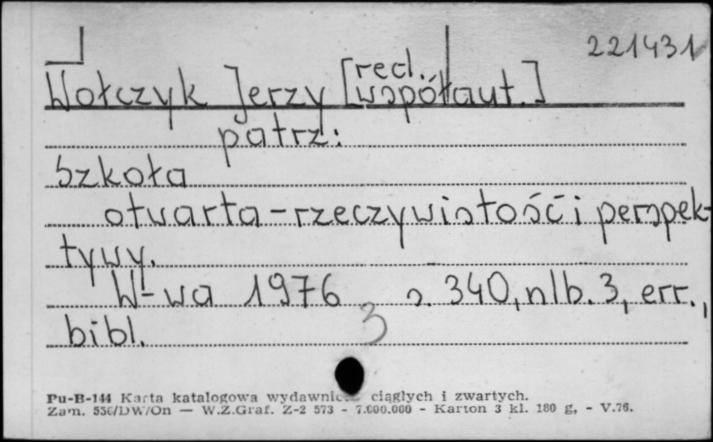 221431
Wołczyk Jerzy [red.
współaut.]
patrz:
Szkoła
otwarta – rzeczywistość i perspek-
tywy.
W-wa 1976 s. 340, nlb. 3, err.,
bibl. 3
Pu-B-144 Karta katalogowa wydawnictw ciągłych i zwartych.
Zam. 556/DW/On — W.Z.Graf. Z-2 573 - 7.000.000 - Karton 3 kl. 180 g, - V.76.